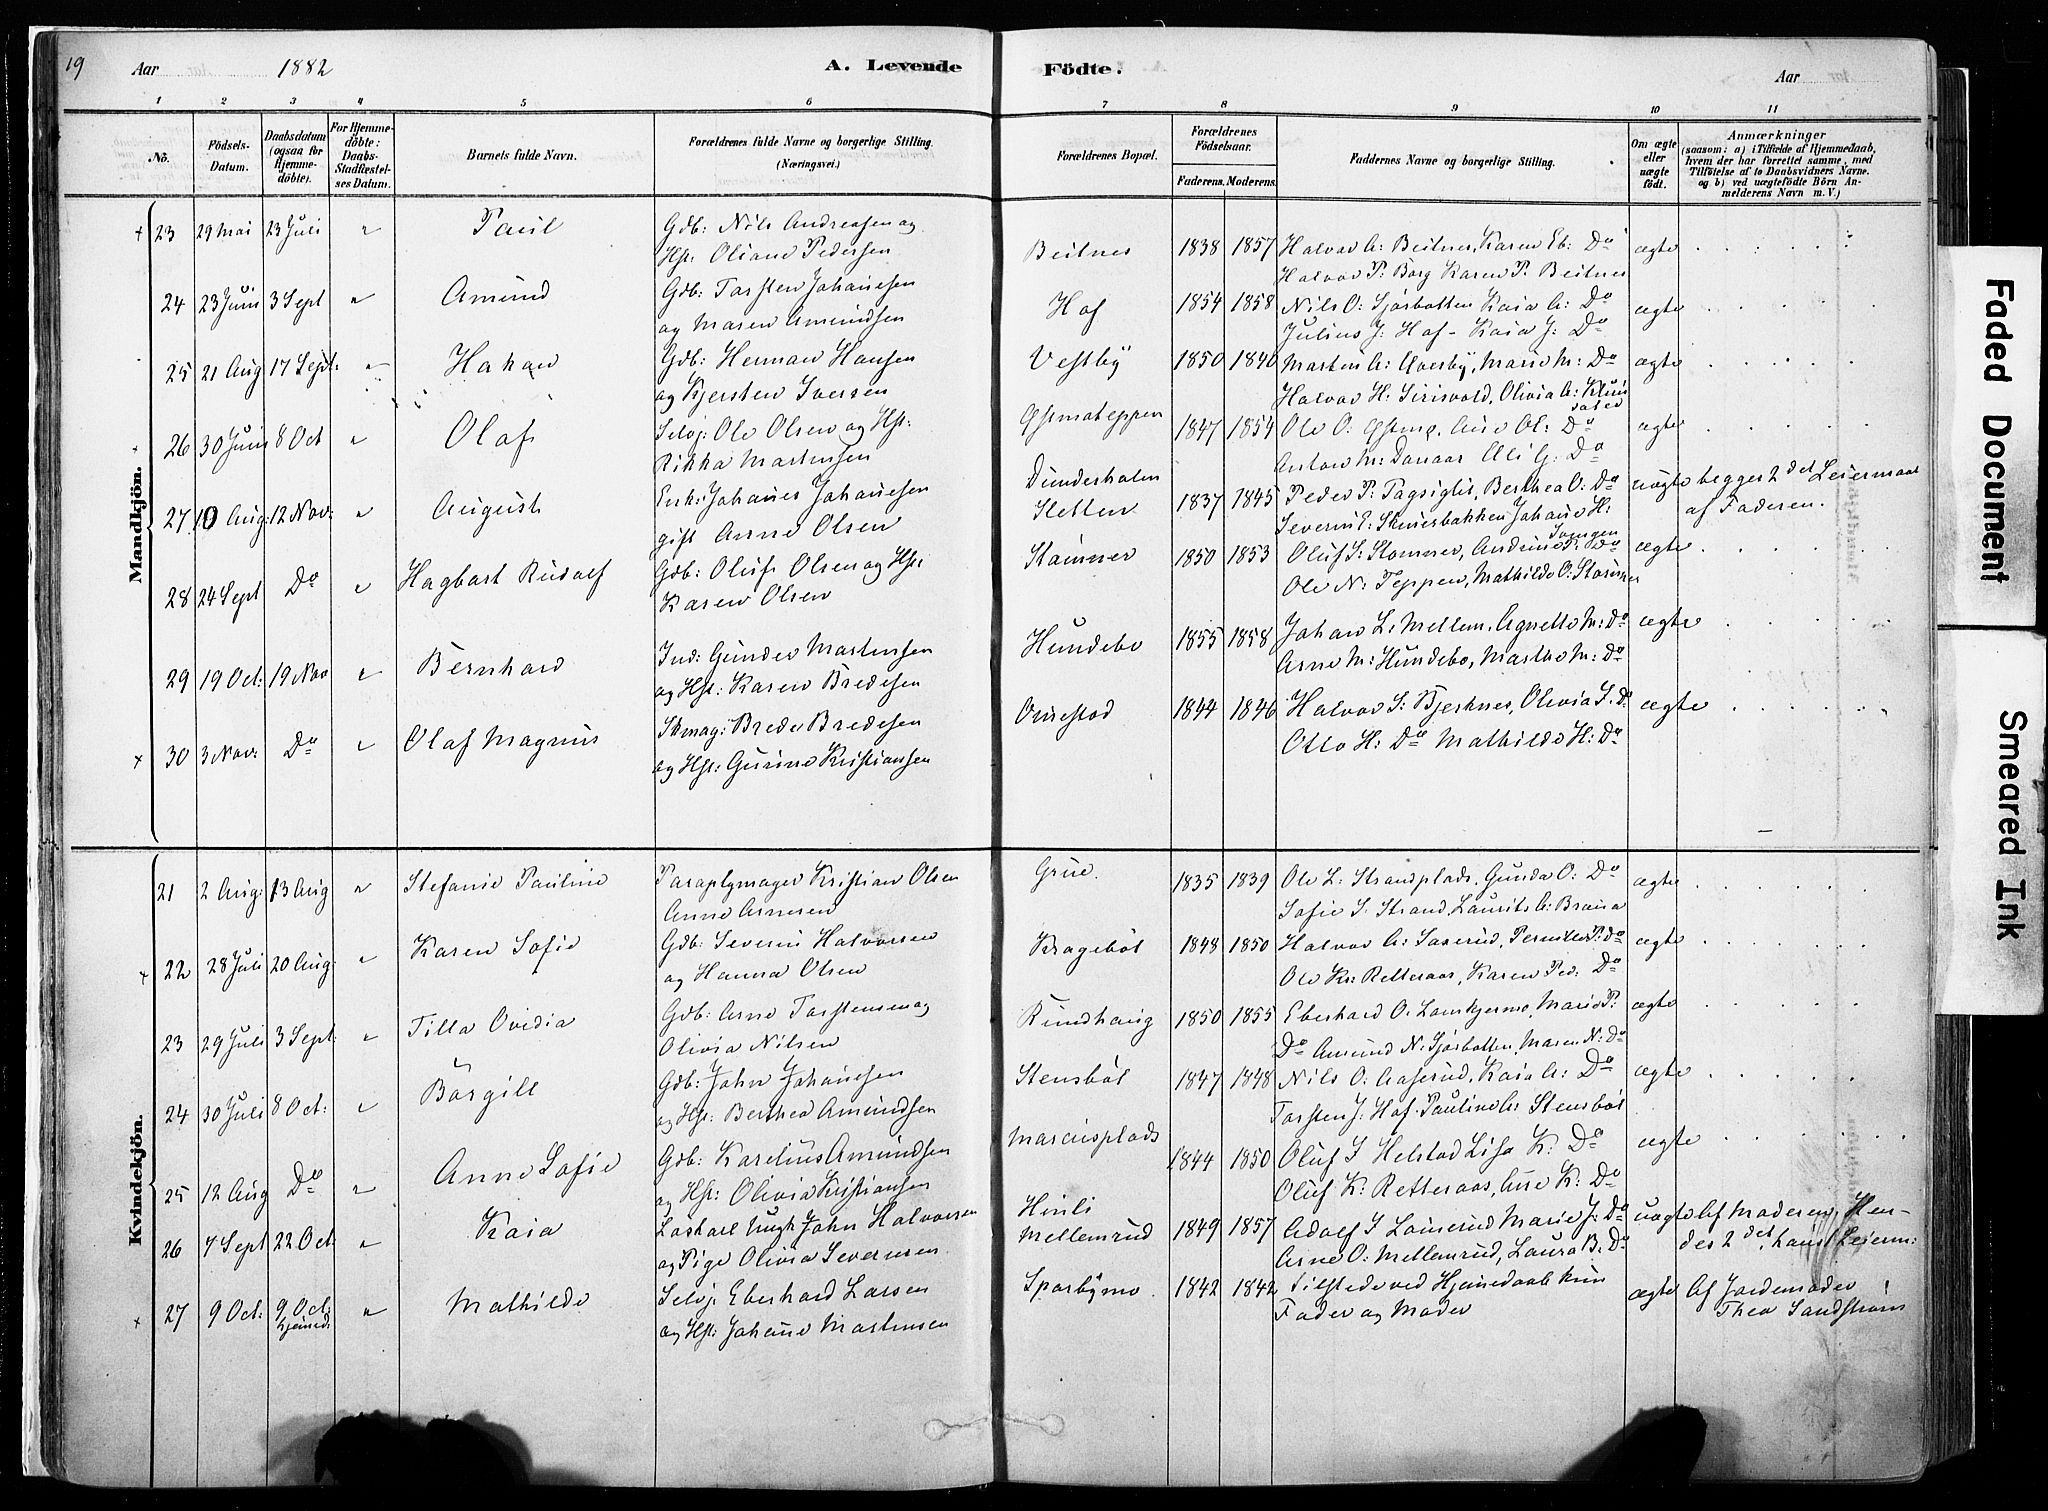 19 Aar 1882 A. Levende Födte. Aar
1 2 3 4 5 6 7 8 9 10 11
No. Födsels-Datum. Daabsdatum (ogsaa for Hjemme-döbte). For Hjemme-döbte: Daabs-Stadfæstel-ses Datum. Barnets fulde Navn. Forældrenes fulde Navne og borgerlige Stilling. (Næringsvei.) Forældrenes Bopæl. Forældrenes Födselsaar. Faderens. Moderens. Faddernes Navne og borgerlige Stilling. Om ægte eller uægte födt. Anmærkninger (saasom: a) i Tilfælde af Hjemmedaab, hvem der har forrettet samme, med Tilföielse af to Daabsvidners Navne. og b) ved uægtefödte Börn An-melderens Navn m. V.)
Mandkjön.
+ 23 29 Mai 23 Juli " Paul Gdb: Nils Andreasen og Beitnes 1838 1857 Halvor A: Beitnes, Karen Eb: Do ægte
Hst: Oliane Pedersen Halvor P: Borg Karen P. Beitnes
24 23 Juni 3 Sept " Amund Gdb: Torsten Johansen Hof 1854 1858 Nils O: Sjørbotten Kaia A: Do ægte
og Maren Amundsen Julius J: Hof - Kaia J: Do
25 21 Aug 17 Sept: " Hakan Gdb: Herman Hansen Vestby 1850 1840 Marten A: Overby, Marie M: Do ægte
og Kjersten Iversen Halvor H: Sirisvold, Olivia A:
26 30 Juni 8 Oct " Olaf Selvj: Ole Olsen og Hst: 1847 1854 Ole O: Do ægte
Rikka Martensen Anton M: Do
27 10 Aug: 12 Nov: " August Enk: Johanes Johanesen Sletten 1837 1845 Peder P: Berthea O: Do uægte begges 2det Leiermaal
gift Anne Olsen af Faderen.
28 24 Sept Do " Hagbart Rudolf Gdb: Oluf Olsen og Hst: Stømner 1850 1853 Oluf S: Stømner, ægte
Karen Olsen Ole N: Teppen, Mathilde O: Stømner
29 19 Oct: 19 Nov " Bernhard Ind: Gunder Martensen Hundebo 1855 1858 Johan L: Mellem. Agnette M: Do ægte
og Hst: Karen Bredesen Arne M: Hundebo, Marthe M: Do
+ 30 3 Nov: Do " Olaf Magnus Skmag: Brede Bredesen Onestad 1844 1846 Halvor S: Bjerknes, Olivia S. Do ægte
og Hst: Gurine Kristiansen Otto H: Do Mathilde H: Do
Kvindekjön.
21 2 Aug: 13 Aug " Stefanie Pauline Paraplymager Kristian Olsen Grue. 1835 1839 Ole L: Strandplads, Gunda O: Do ægte
Anne Arnesen Sofie S. Strand, Laurits A: Braua
+ 22 28 Juli 20 Aug: " Karen Sofie Gdb: Severin Halvorsen Kragebøl 1848 1850 Halvor A: Saxerud, Pernille P: do ægte
og Hanna Olsen Ole Kr: Retteraas, Karen Ped: Do
23 29 Juli 3 Sept: " Tilla Ovidia Gdb: Arne Torstensen og Rundhaug 1850 1855 Eberhard O. Marie P: ægte
Olivia Nilsen Do Amund N: Sjørbotten, Maren N: Do
24 30 Juli 8 Oct: " Børgill Gdb: John Johanesen Stensbøl 1847 1848 Nils O: Aaserud, Kaia A: Do ægte
og Hst: Berthea Amundsen Torsten J: Hof. Pauline A: Stensbøl
25 12 Aug Do " Anne Sofie Gdb: Karelius Amundsen Marcusplads 1844 1850 Oluf S Helstad Lisa K: Do ægte
og Hst: Olivia Kristiansen Oluf K: Retteraas, Ane K: Do
26 7 Sept 22 Oct: " Kaia Løskarl Ungk John Halvorsen Hinli Mellemrud 1849 1857 Adolf S Marie J: Do uægte Af Moderen. Hen-
og Pige Olivia Severinsen Arne O: Mellemrud, Laura B: Do des 2det, hans Leierm:
+ 27 9 Oct: 9 Oct: hjemed: " Mathilde Selvj Eberhard Larsen Sparbymo. 1842 1842 Tilstede ved Hjemedaab kun ægte Af Jordemoder
og Hst: Johane Martinsen Fader og Moder Thea Sandstrøm
Faded Document
Smeared Ink